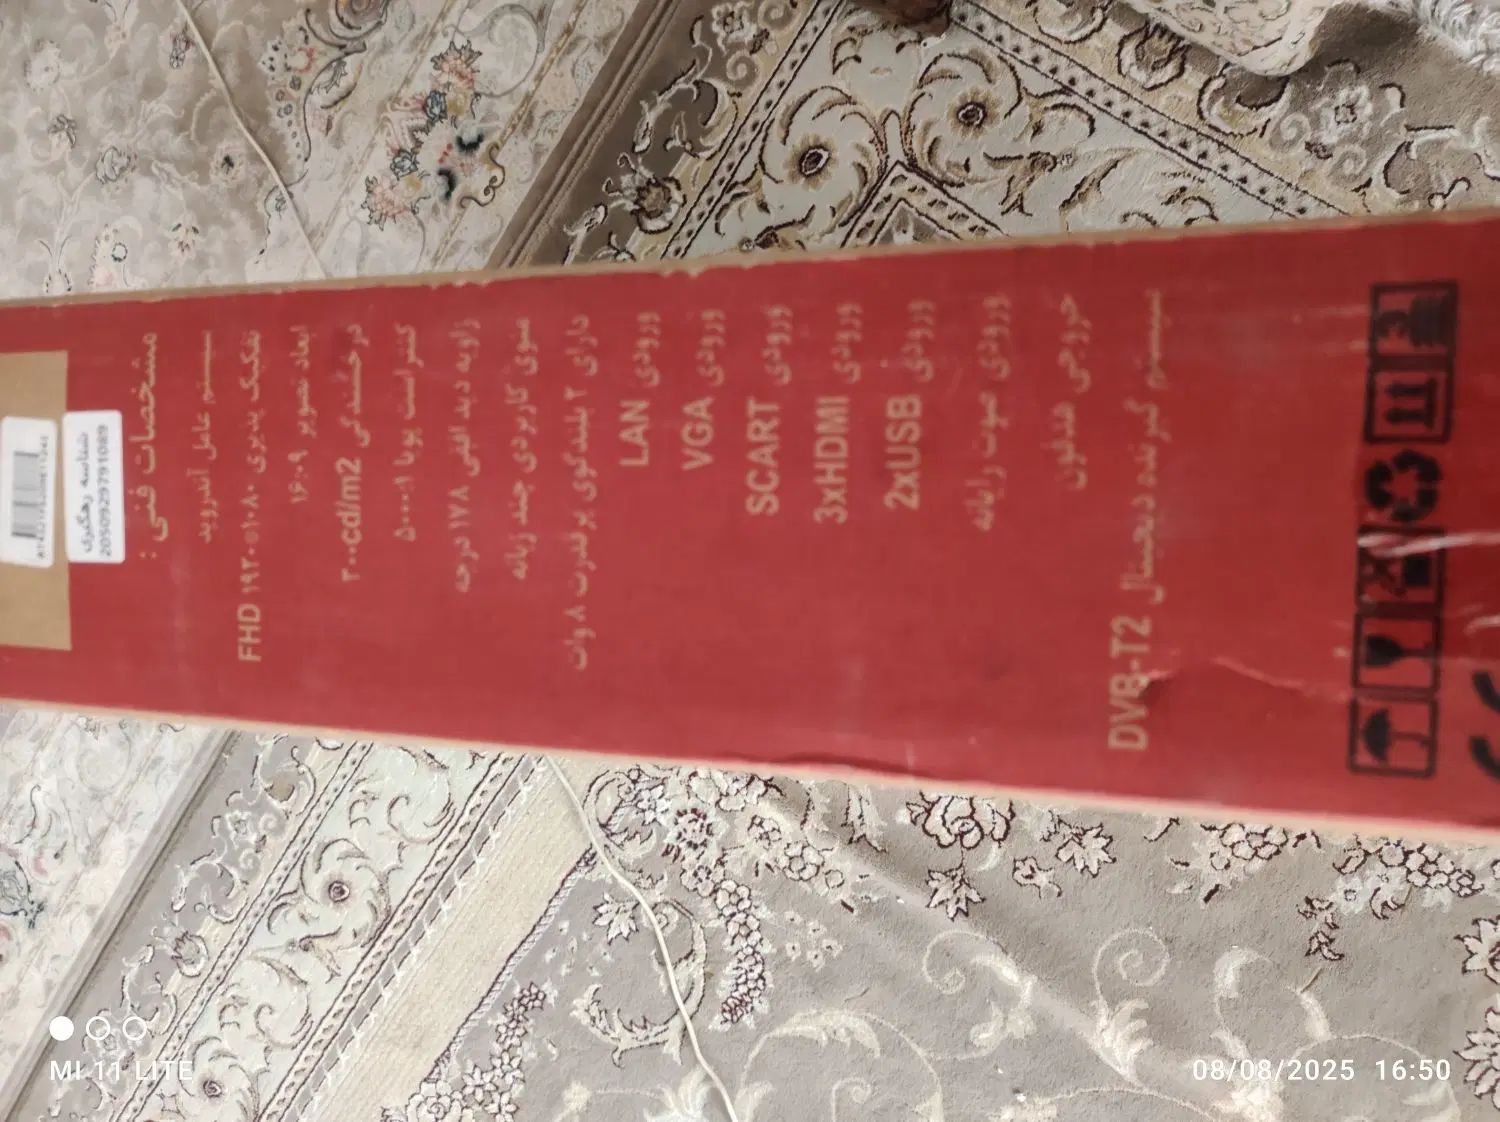 مشخصات فنی :
سیستم عامل آندروید
تفکیک پذیری FHD ۱۹۲۰x۱۰۸۰
ابعاد تصویر ۱۶:۰۹
درخشندگی ۲۰۰cd/m2
کنتراست پویا ۵۰۰۰:۱
زاویه دید افقی ۱۷۸ درجه
منوی کاربردی چند زبانه
دارای ۲ بلندگوی پرقدرت ۸ وات
ورودی LAN
ورودی VGA
ورودی SCART
ورودی 3xHDMI
ورودی 2xUSB
ورودی صوت رایانه
خروجی هدفون
سیستم گیرنده دیجیتال DVB-T2
شناسه رهگیری
2050929791089
MI 11 LITE
08/08/2025 16:50